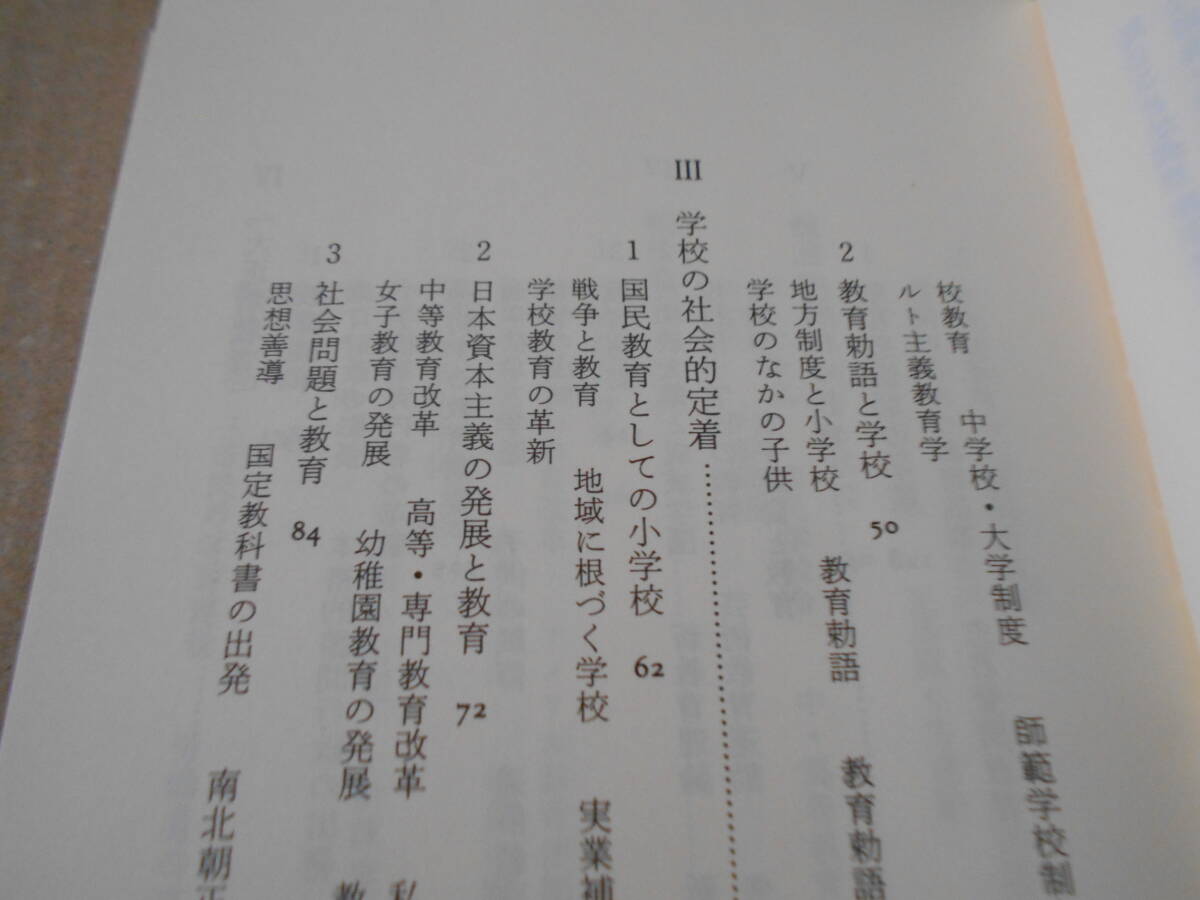 校教育　中学校・大学制度　師範学校制
ルト主義教育学
2　教育勅語と学校　50
地方制度と小学校　教育勅語　教育勅語
学校のなかの子供
III　学校の社会的定着……………………
1　国民教育としての小学校　62
戦争と教育　地域に根づく学校　実業補
学校教育の革新
2　日本資本主義の発展と教育　72
中等教育改革　高等・専門教育改革　私
女子教育の発展　幼稚園教育の発展　教
3　社会問題と教育　84
思想善導　国定教科書の出発　南北朝正